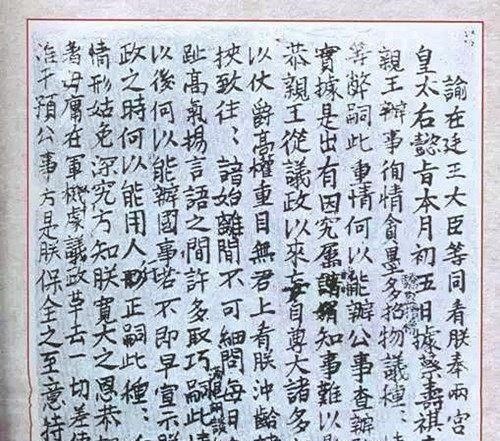 諭在廷王大臣等同看朕奉兩宮
皇太后懿旨本月初五日據蔡壽祺
親王辦事徇情貪墨多招物議種：情
等弊嗣此事情何以能辦公事查辦
實據是出有因究屬知事難以
恭親王從議政以來妄自尊大諸多
以仗爵高權重目無君上看朕沖齡
挾致往：諳始離間不可細問每日
趾高氣揚言語之間許多取巧嗣此情
以後何以能辦國事若不即早宣示朕
政之時何以能用人行正嗣此種：
情形姑免深究方知朕寬大之恩恭
着毋庸在軍機處議政革去一切差使
准干預公事方是朕保全之至意特